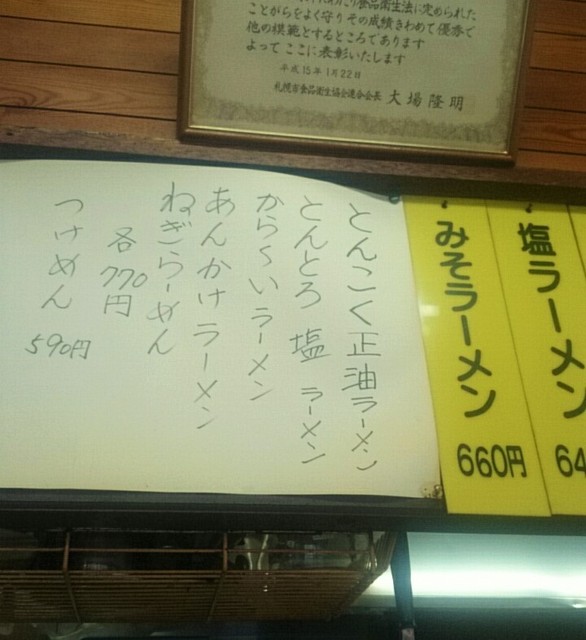 ことがらをよく守りその成績きわめて優秀で
他の模範とするところであります
よってここに表彰いたします
平成15年1月22日
札幌市食品衛生協会連合会長 大場隆明
塩ラーメン
64
みそラーメン
660円
とんこく正油ラーメン
とんとろ 塩 ラーメン
から〜いラーメン
あんかけラーメン
ねぎらーめん
各770円
つけめん 590円